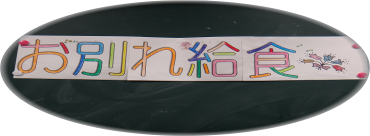 お別れ給食